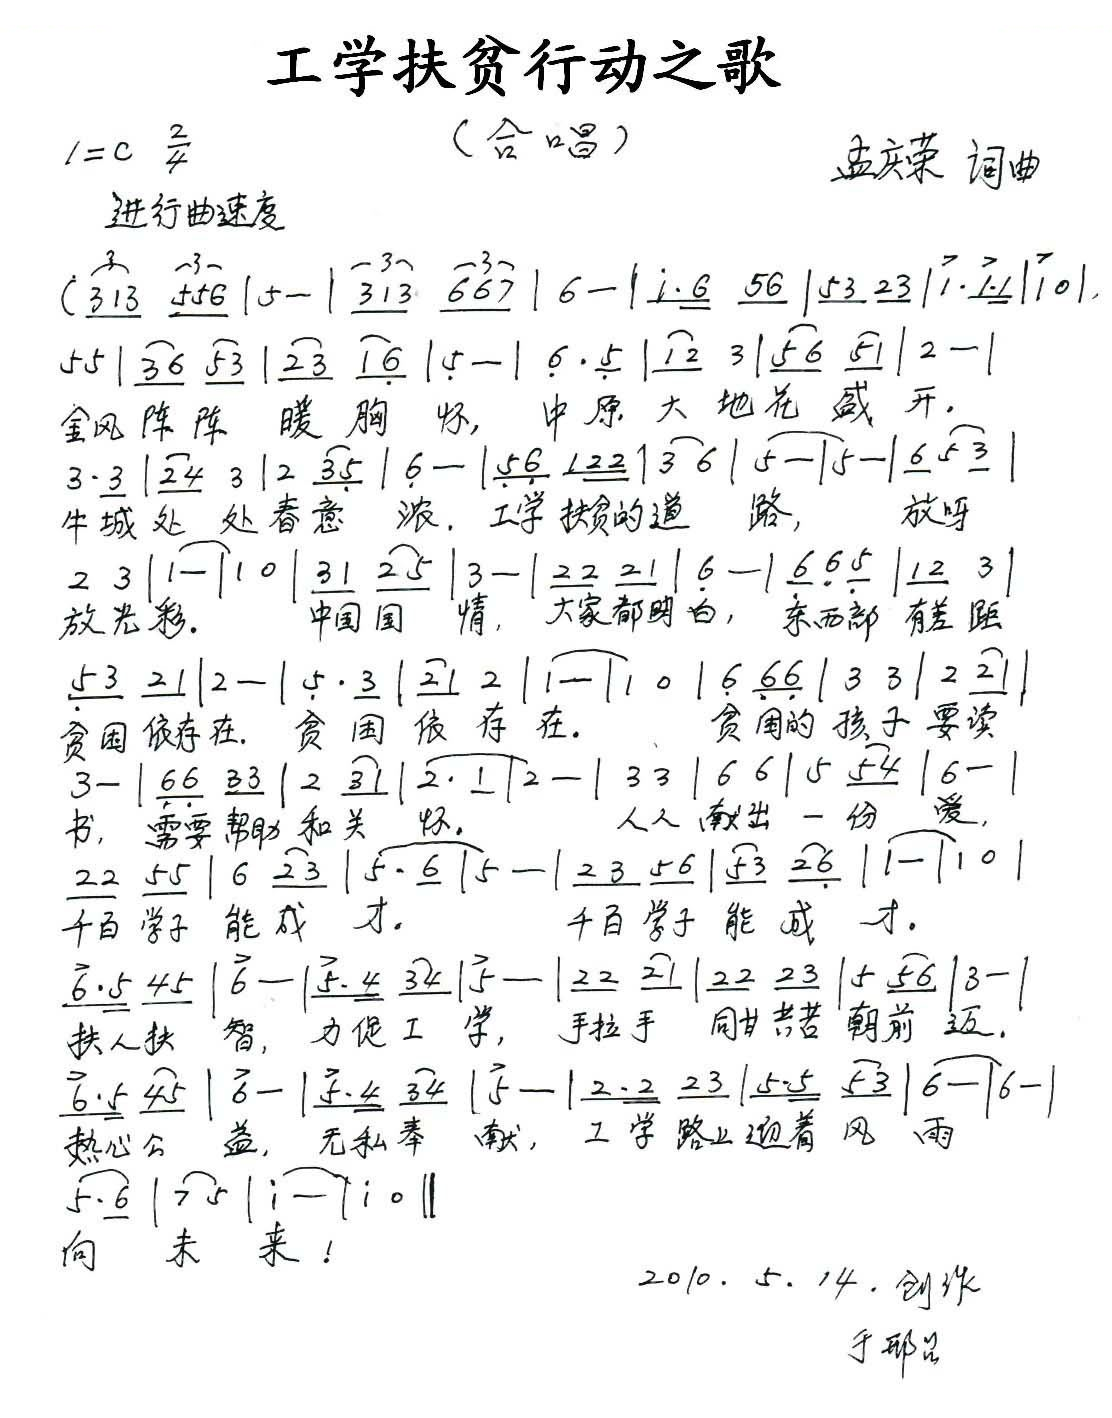 工学扶贫行动之歌
(合唱)
1=C 2/4
孟庆荣 词曲
进行曲速度
(313 556|5—|313 667|6—|i·6 56|53 23|i·i·i|i0|,
55|36 53|23 16|5—|6·5|12 3|56 51|2—|
金风阵阵 暖胸怀, 中原大地花盛开.
3·3|24 3|2 35|6—|56 122|36|5—|5—|6 5 3|
牛城处处春意浓. 工学扶贫的道路, 放呀
2 3|1—|1 0|31 25|3—|22 21|6—|6 6 5|12 3|
放光彩. 中国国情, 大家都明白, 东西部有差距
53 21|2—|5·3|21 2|1—|1 0|6 66|3 3|2 21|
贫困依存在. 贫困依存在. 贫困的孩子要读
3—|66 33|2 31|2·1|2—|33|66|5 54|6—|
书, 需要帮助和关怀. 人人献出一份爱,
22 55|6 23|5·6|5—|23 56|53 26|1—|1 0|
千百学子能成才. 千百学子能成才.
6·5 45|6—|5·4 34|5—|22 21|22 23|5 56|3—|
扶人扶智, 力促工学, 手拉手 同甘共苦朝前迈.
6·5 45|6—|5·4 34|5—|2·2 23|5·5 53|6—|6—|
热心公益, 无私奉献, 工学路上迎着风雨
5·6|7 5|i—|i 0‖
向未来!
2010.5.14.创作
于邢台